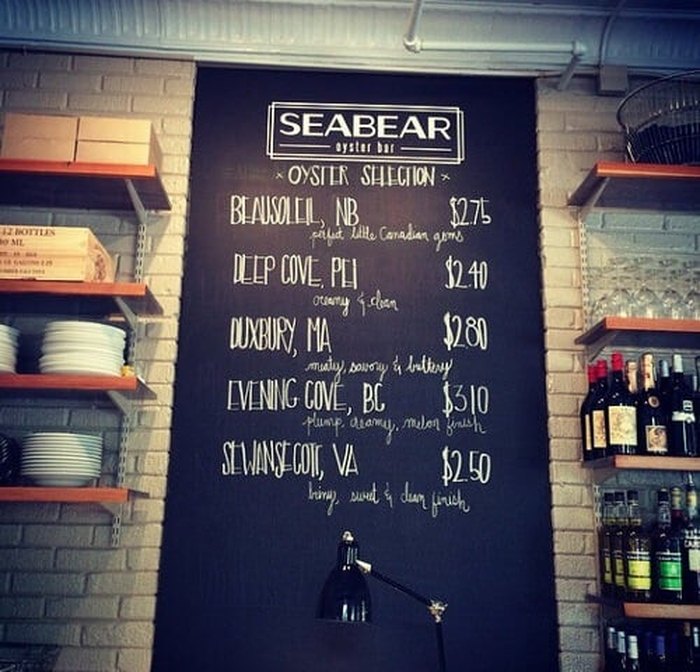 SEABEAR
oyster bar
× OYSTER SELECTION ×
BEAUSOLEIL, NB $2.75
perfect little Canadian gems
DEEP COVE, PEI $2.40
creamy & clean
DUXBURY, MA $2.80
meaty, savory & buttery
EVENING COVE, BC $3.10
plump, creamy, melon finish
SEWANSECOTT, VA $2.50
briny, sweet & clean finish
12 BOTTLES
ML